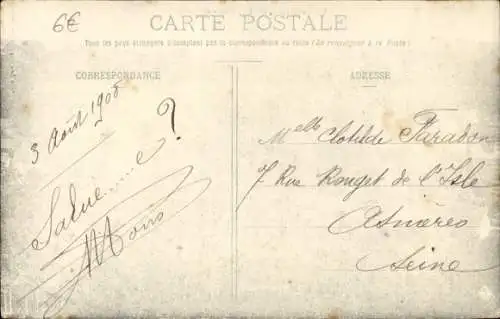 6€
CARTE POSTALE
Tous les pays étrangers n'acceptent pas la correspondance au recto (Se renseigner à la Poste)
CORRESPONDANCE
ADRESSE
3 Août 1908
Salue......e ?
Melle Clotilde Paradon
7 Rue Rouget de l'Isle
Asnières
Seine